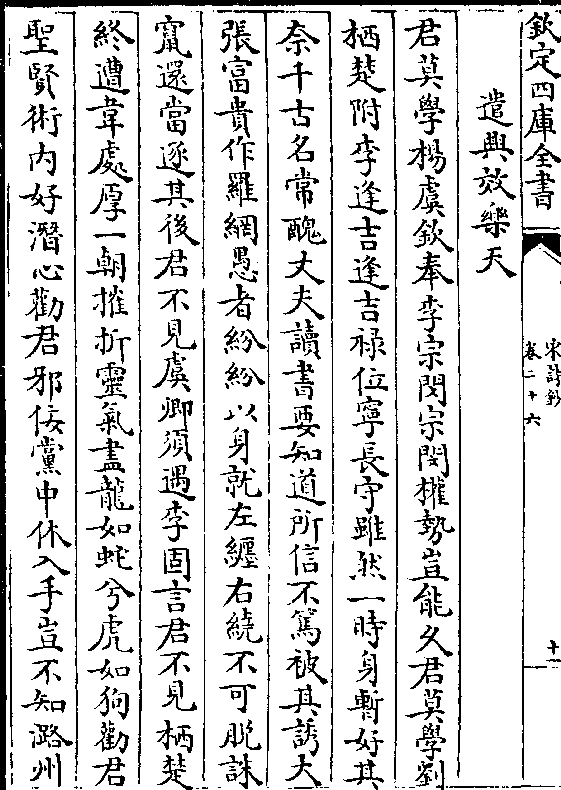 欽定四庫全書
宋詩鈔
卷二十六
十一
遣興效樂天
君莫學楊虞欽奉李宗閔宗閔權勢豈能久君莫學劉
栖楚附李逢吉逢吉祿位寧長守雖然一時身暫好其
奈千古名常醜丈夫讀書要知道所信不篤被其誘大
張富貴作羅網愚者紛紛以身就左纏右繞不可脫誅
竄還當逐其後君不見虞卿須遇李固言君不見栖楚
終遭韋處厚一朝摧折靈氣盡龍如蛇兮虎如狗勸君
聖賢術内好潛心勸君邪佞黨中休入手豈不知潞州